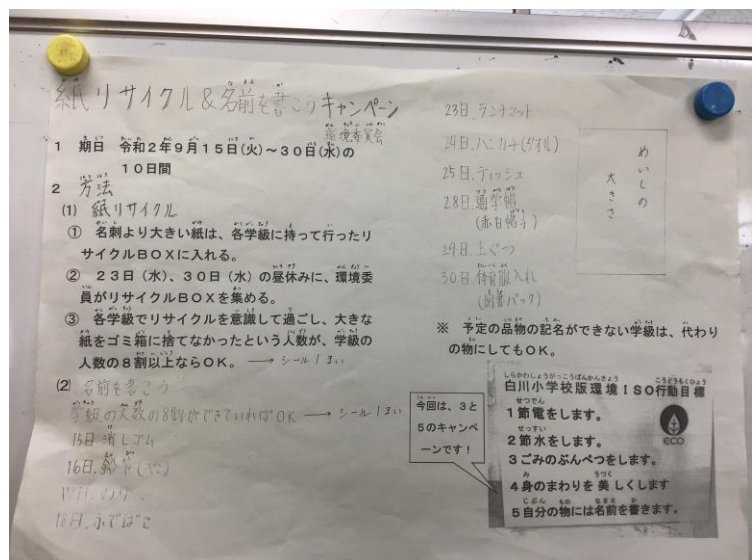 紙リサイクル&名前を書こうキャンペーン
環境委員会
1 期日 令和2年9月15日(火)～30日(水)の
10日間
2 方法
(1) 紙リサイクル
① 名刺より大きい紙は、各学級に持って行ったリ
サイクルBOXに入れる。
② 23日(水)、30日(水)の昼休みに、環境委
員がリサイクルBOXを集める。
③ 各学級でリサイクルを意識して過ごし、大きな
紙をゴミ箱に捨てなかったという人数が、学級の
人数の8割以上ならOK。 → シール1まい
(2) 名前を書こう
学級の人数の8割ができていればOK → シール1まい
15日.消しゴム
16日.鉛筆
17日.のり
18日.ふでばこ
23日.ランチマット
24日.ハンカチ(タオル)
25日.ティッシュ
28日.通学帽
(赤白帽子)
29日.上ぐつ
30日.体育服入れ
(図書バック)
めいしの
大きさ
※ 予定の品物の記名ができない学級は、代わり
の物にしてもOK。
今回は、3と
5のキャンペ
ーンです!
しらかわしょうがっこうばんかんきょう こうどうもくひょう
白川小学校版環境ISO行動目標
せつでん
1節電をします。
せっすい
2節水をします。
3ごみのぶんべつをします。
み うつく
4身のまわりを美しくします
じぶん もの なまえ か
5自分の物には名前を書きます。
ECO